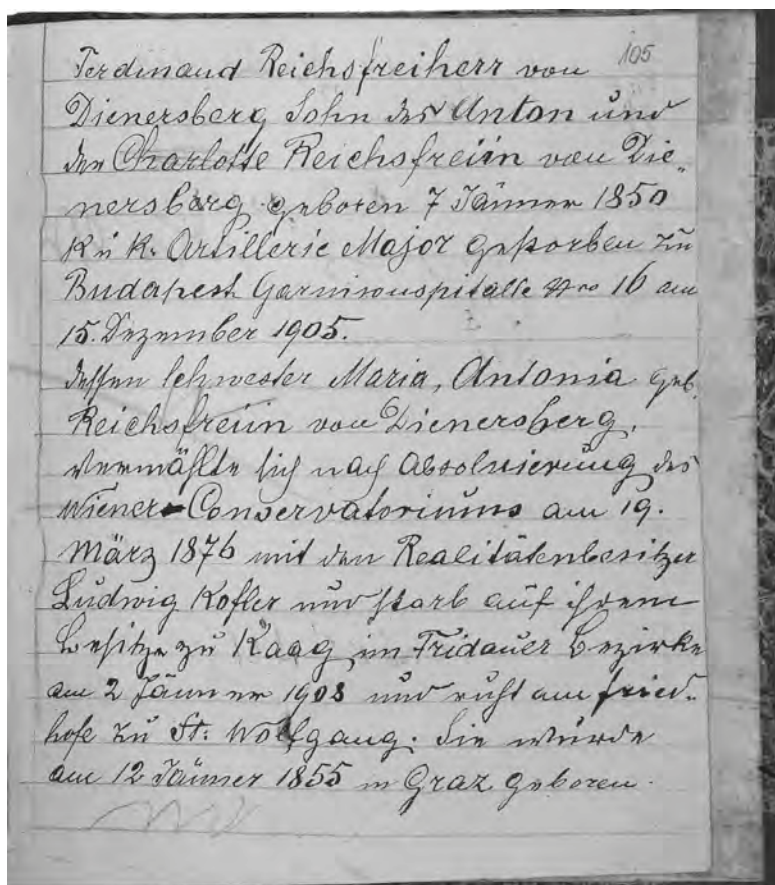 105
Ferdinand Reichsfreiherr von
Dienersberg Sohn des Anton und
der Charlotte Reichsfreiin von Die„
nersberg geboren 7 Jänner 1850
K u K. Artillerie Major gestorben zu
Budapest Garnisonspitalle Nro 16 am
15. Dezember 1905.
dessen Schwester Maria, Antonia geb.
Reichsfreiin von Dienersberg,
vermählte sich nach Absolvierung des
Wiener-Conservatoriums am 19.
März 1876 mit den Realitätenbesitzer
Ludwig Kofler und starb auf ihrem
Besitze zu Kaag im Fridauer Bezirke
am 2 Jänner 1908 und ruht am Fried„
hofe zu St: Wolfgang. Sie wurde
am 12 Jänner 1855 in Graz geboren.